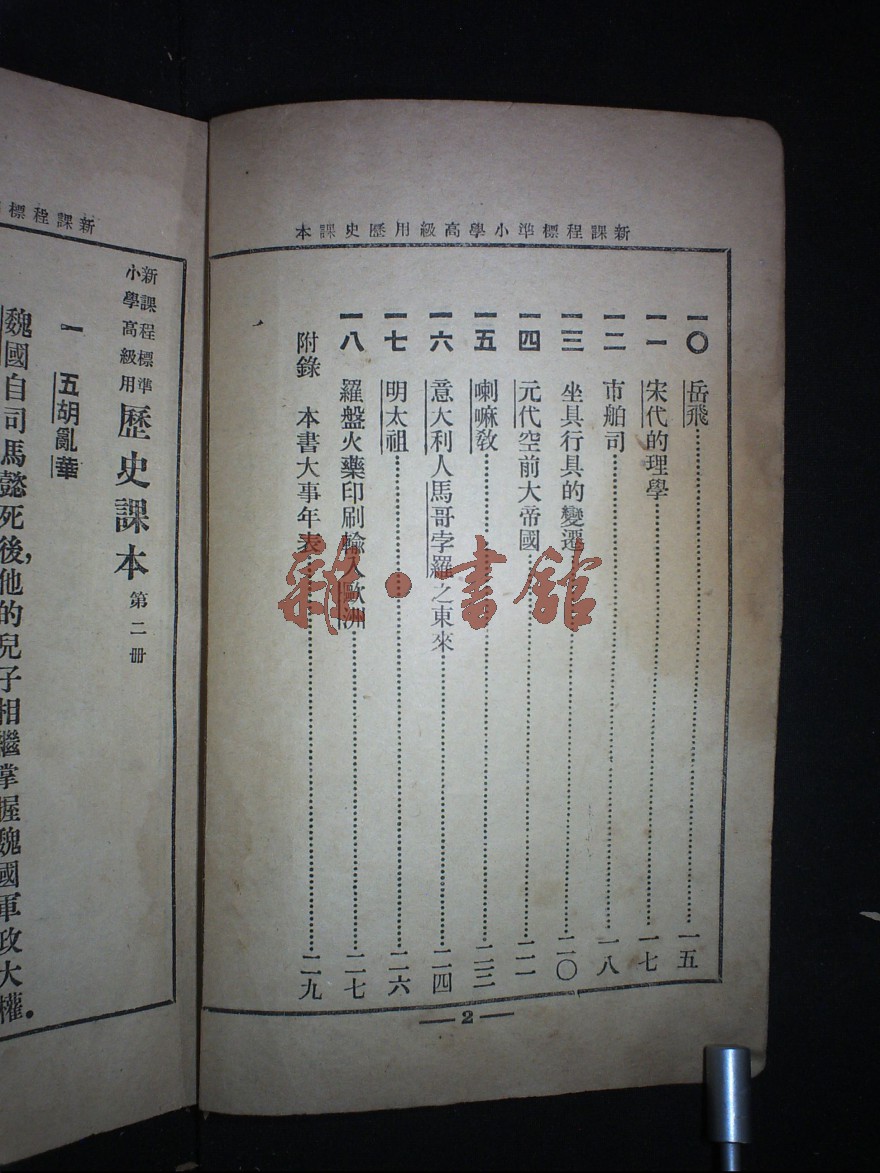 新課程標準小學高級用歷史課本
一〇 岳飛 一五
一一 宋代的理學 一七
一二 市舶司 一八
一三 坐具行具的變遷 二〇
一四 元代空前大帝國 二一
一五 喇嘛教 二三
一六 意大利人馬哥孛羅之東來 二四
一七 明太祖 二六
一八 羅盤火藥印刷輸入歐洲 二七
附錄 本書大事年表 二九
2
雜·書館
新課程標
新課程標準
小學高級用
歷史課本 第二册
一 五胡亂華
魏國自司馬懿死後,他的兒子相繼掌握魏國軍政大權.